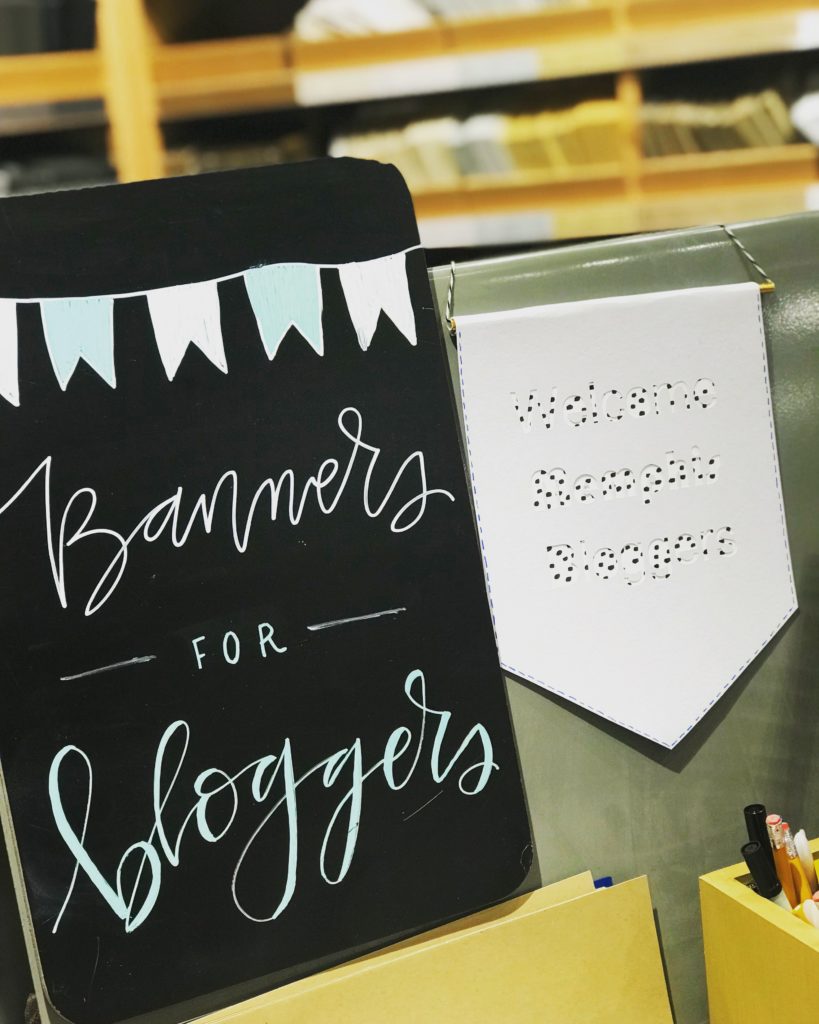 Banners
FOR
bloggers
Welcome
Bloggers